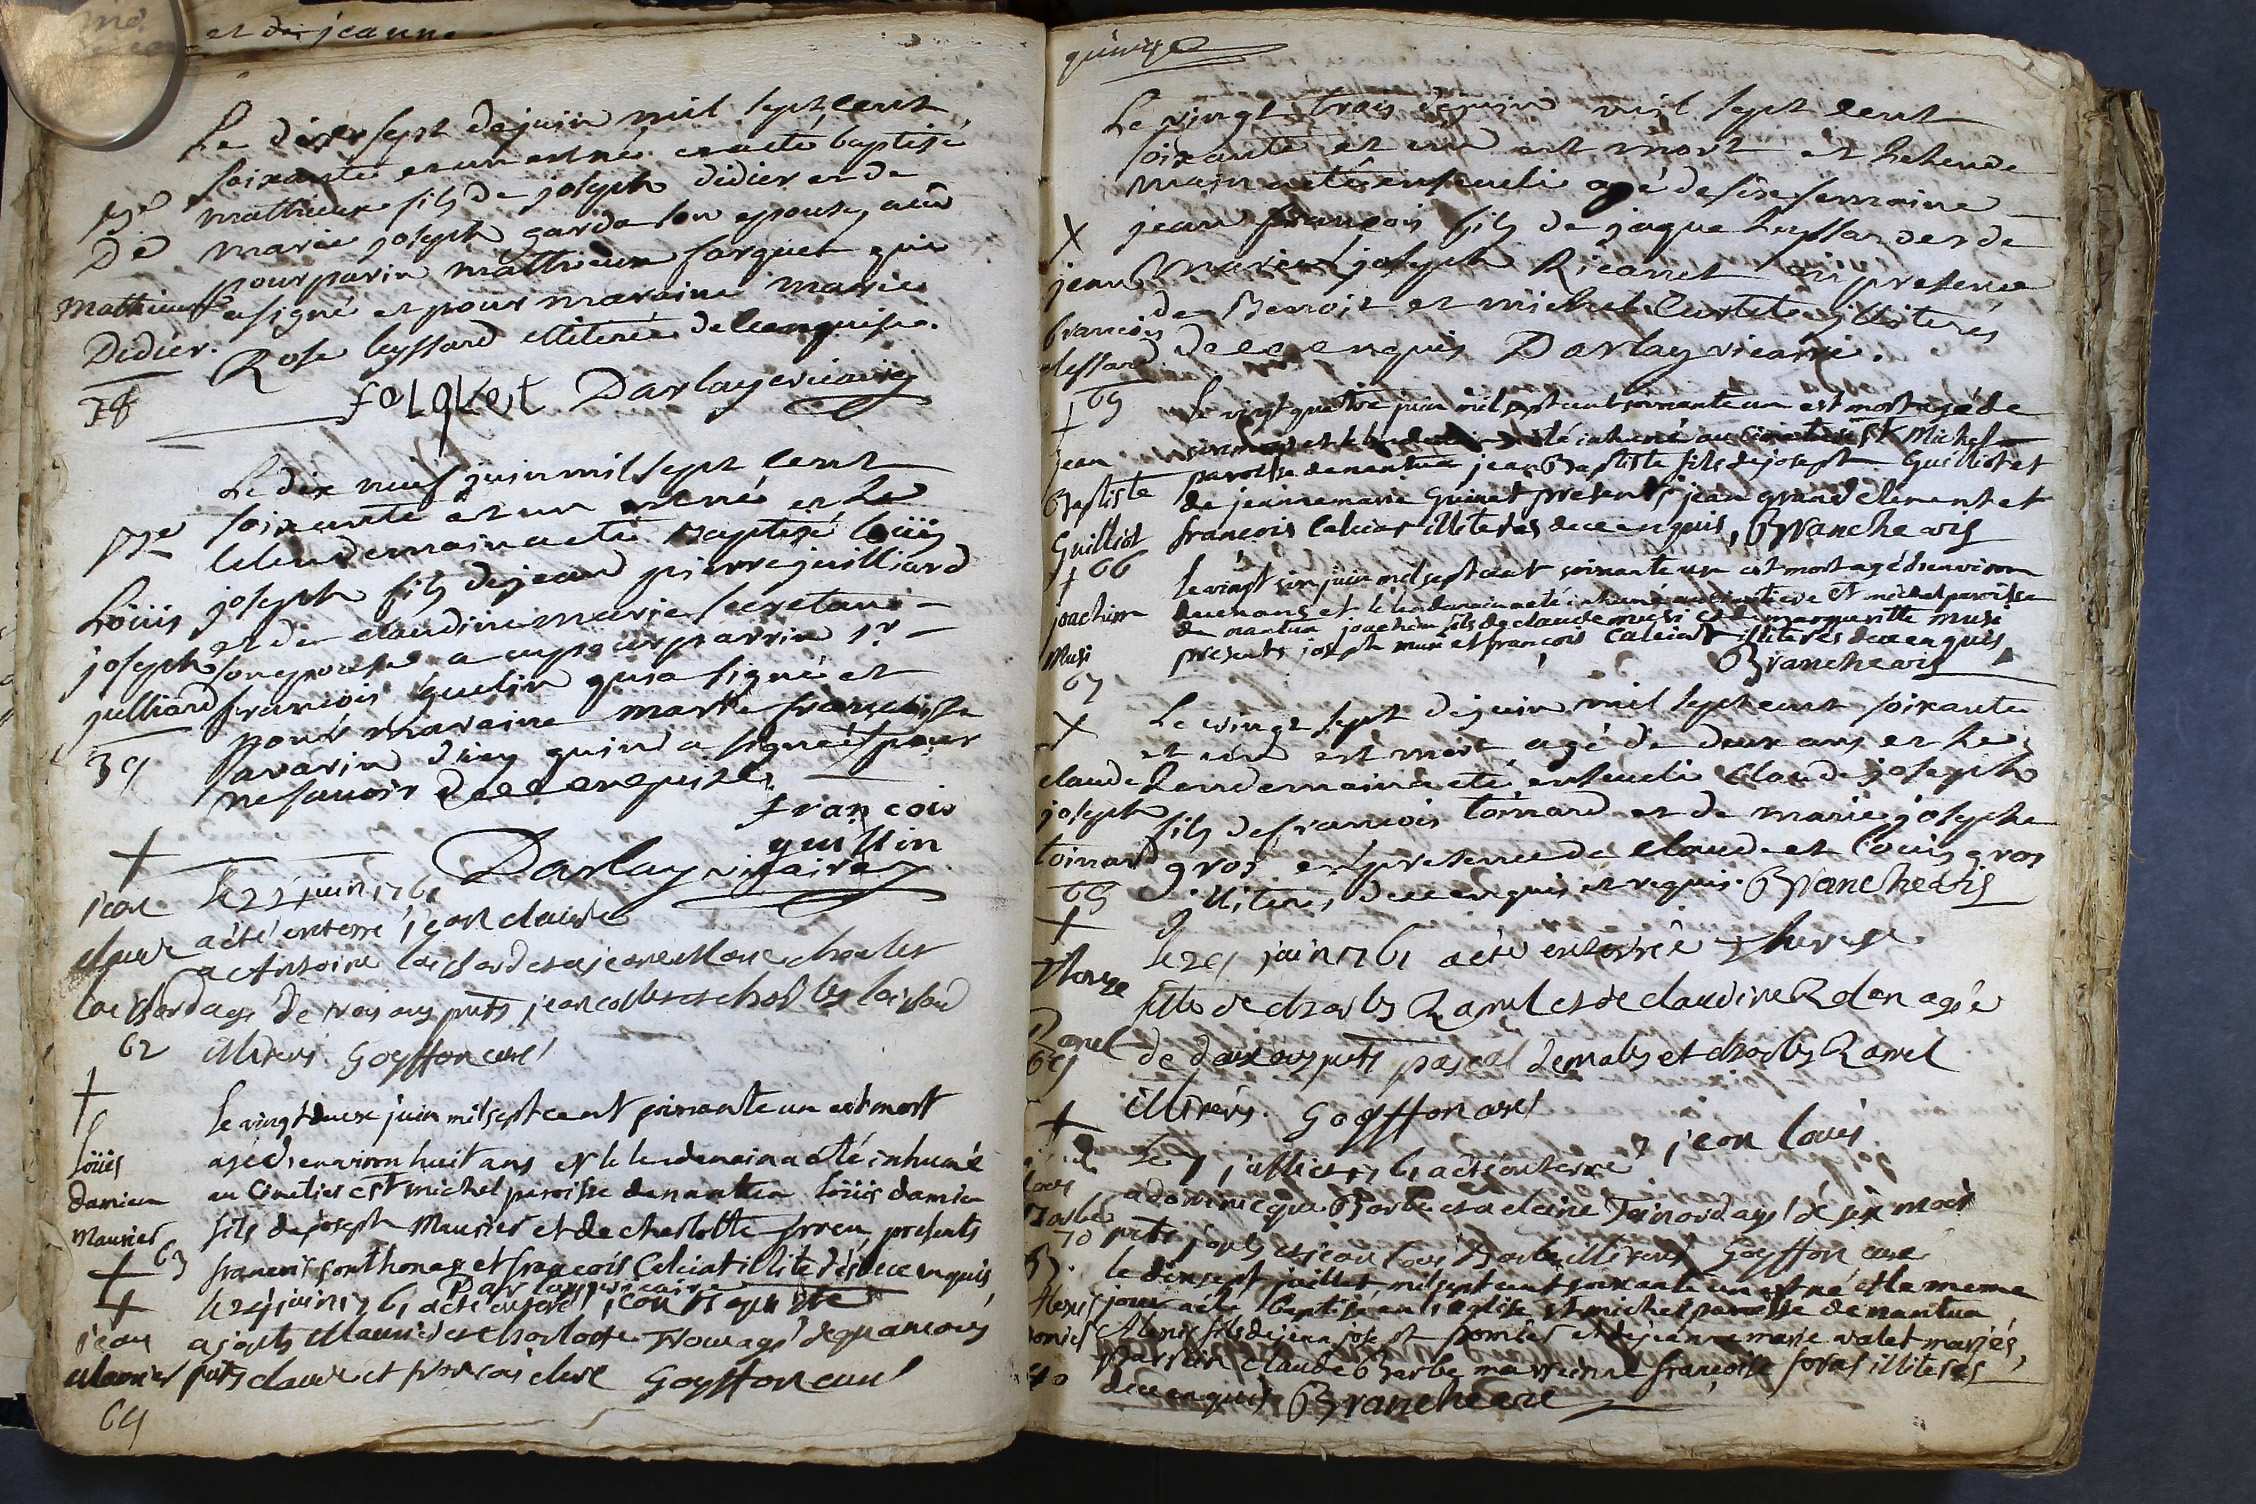 et de jeanne
Le dixsept de juin mil sept cent
soixante et un est né et a eté baptisé
mathieux fils de joseph didier et de
marie joseph garda son epouse, a eû
pour parin mathieux forquet qui
a signé et pour maraine marie
Rose leyssard illiterée de ce enquise.
De
Mathieux
Didier.
38
folqvet Darlay vicaire
Le dix neuf juin mil sept cent
soixante et un est né et le
lendemain a eté Baptisé loüis
joseph fils de jean pierre juilliard
et de claudine marie secretant
son epouse a eu pour parrin sr
francois guelin qui a signé et
pour maraine marie francoise
avarin d'icy qui n'a signé pour
ne savoir de ce enquise
Loüis
joseph
julliard
39
francois
guillin
Darlay vicaire
+
jean
claude
le 21 juin 1761
a été enterré jean claude
a Antoine et a jeane Marie
agé de trois ans pnts jean
62 illiterés Goyffon curé
+
Loüis
damien
Maurier
63
le vingt deux juin mil sept cent soixante un est mort
agé d'environ huit ans et le lendemain a été inhumé
au Cimetiere St michel paroisse de nantua loüis damien
fils de joseph Maurier et de charlotte presents
francois fonthonax et francois Calciat illiterés de ce enquis
Darlay vicaire
+
+
jean
Maurier
64
le 24 juin 1761 a été enterré jean
a joseph Maurier et charlotte agé de quatre
pnts claude et francois Goyffon curé
quinze
Le vingt trois de juin mil sept cent
soixante et un est mort et le lende
main a eté enseveli agé de six semaine
jean françois fils de jaque leyssard et de
Marie joseph Ricannet en presence
de Benoit et michel Curtet illiterés
de ce enquis Darlay vicaire.
X
jean
francois
lessard
65
+
jean
Baptiste
Guilliot
66
Le vingt quatre juin mil sept cent soixante un est mort agé de
six mois et le lendemain a été inhumé au Cimetiere St Michel
paroisse de nantua jean Baptiste fils de joseph Guilliot et
de jeanne marie Guinet presents jean grandclément et
francois Calciat illiterés de ce enquis, Branche vic
+
joachim
Musi
67
le vingt six juin mil sept cent soixante un est mort agé d'environ
deux ans et le lendemain a été inhumé au cimetiere St michel paroisse
de nantua joachim fils de claude musi et de marguerite musi
presents joseph musi et francois Calciat illiterés de ce enquis
Branche vic
X
claude
joseph
toinard
68
Le vingt sept de juin mil sept cent soixante
et un est mort agé de deux ans et le
lendemain a eté enseveli Claude joseph
fils de francois toinard et de marie josephe
gros en presence de claude et Louis gros
illiterés de ce enquis et requis. Branche vic
+
Therese
Ramel
69
le 29 juin 1761 a été enterrée therese
fille de charles Ramel et de claudine agée
de deux ans pnts pascal et charles Ramel
illiterés. Goyffon curé
+
Louis
Barbe
70
Le 7 juillet 1761 a été enterré jean louis
a dominique Barbe et a claire agé de six mois
pnts et jean Louis Barbe illiterés Goyffon curé
B.
Alexis
pomier
40
le dixsept juillet, mil sept cent soixante un est né et le meme
jour a été baptisé en l'eglise St michel paroisse de nantua
Alexis fils de jean joseph pomier et de jeanne marie valet mariés,
parrain claude Barbe marrienne francoise illiterés
de ce enquis Branche vic